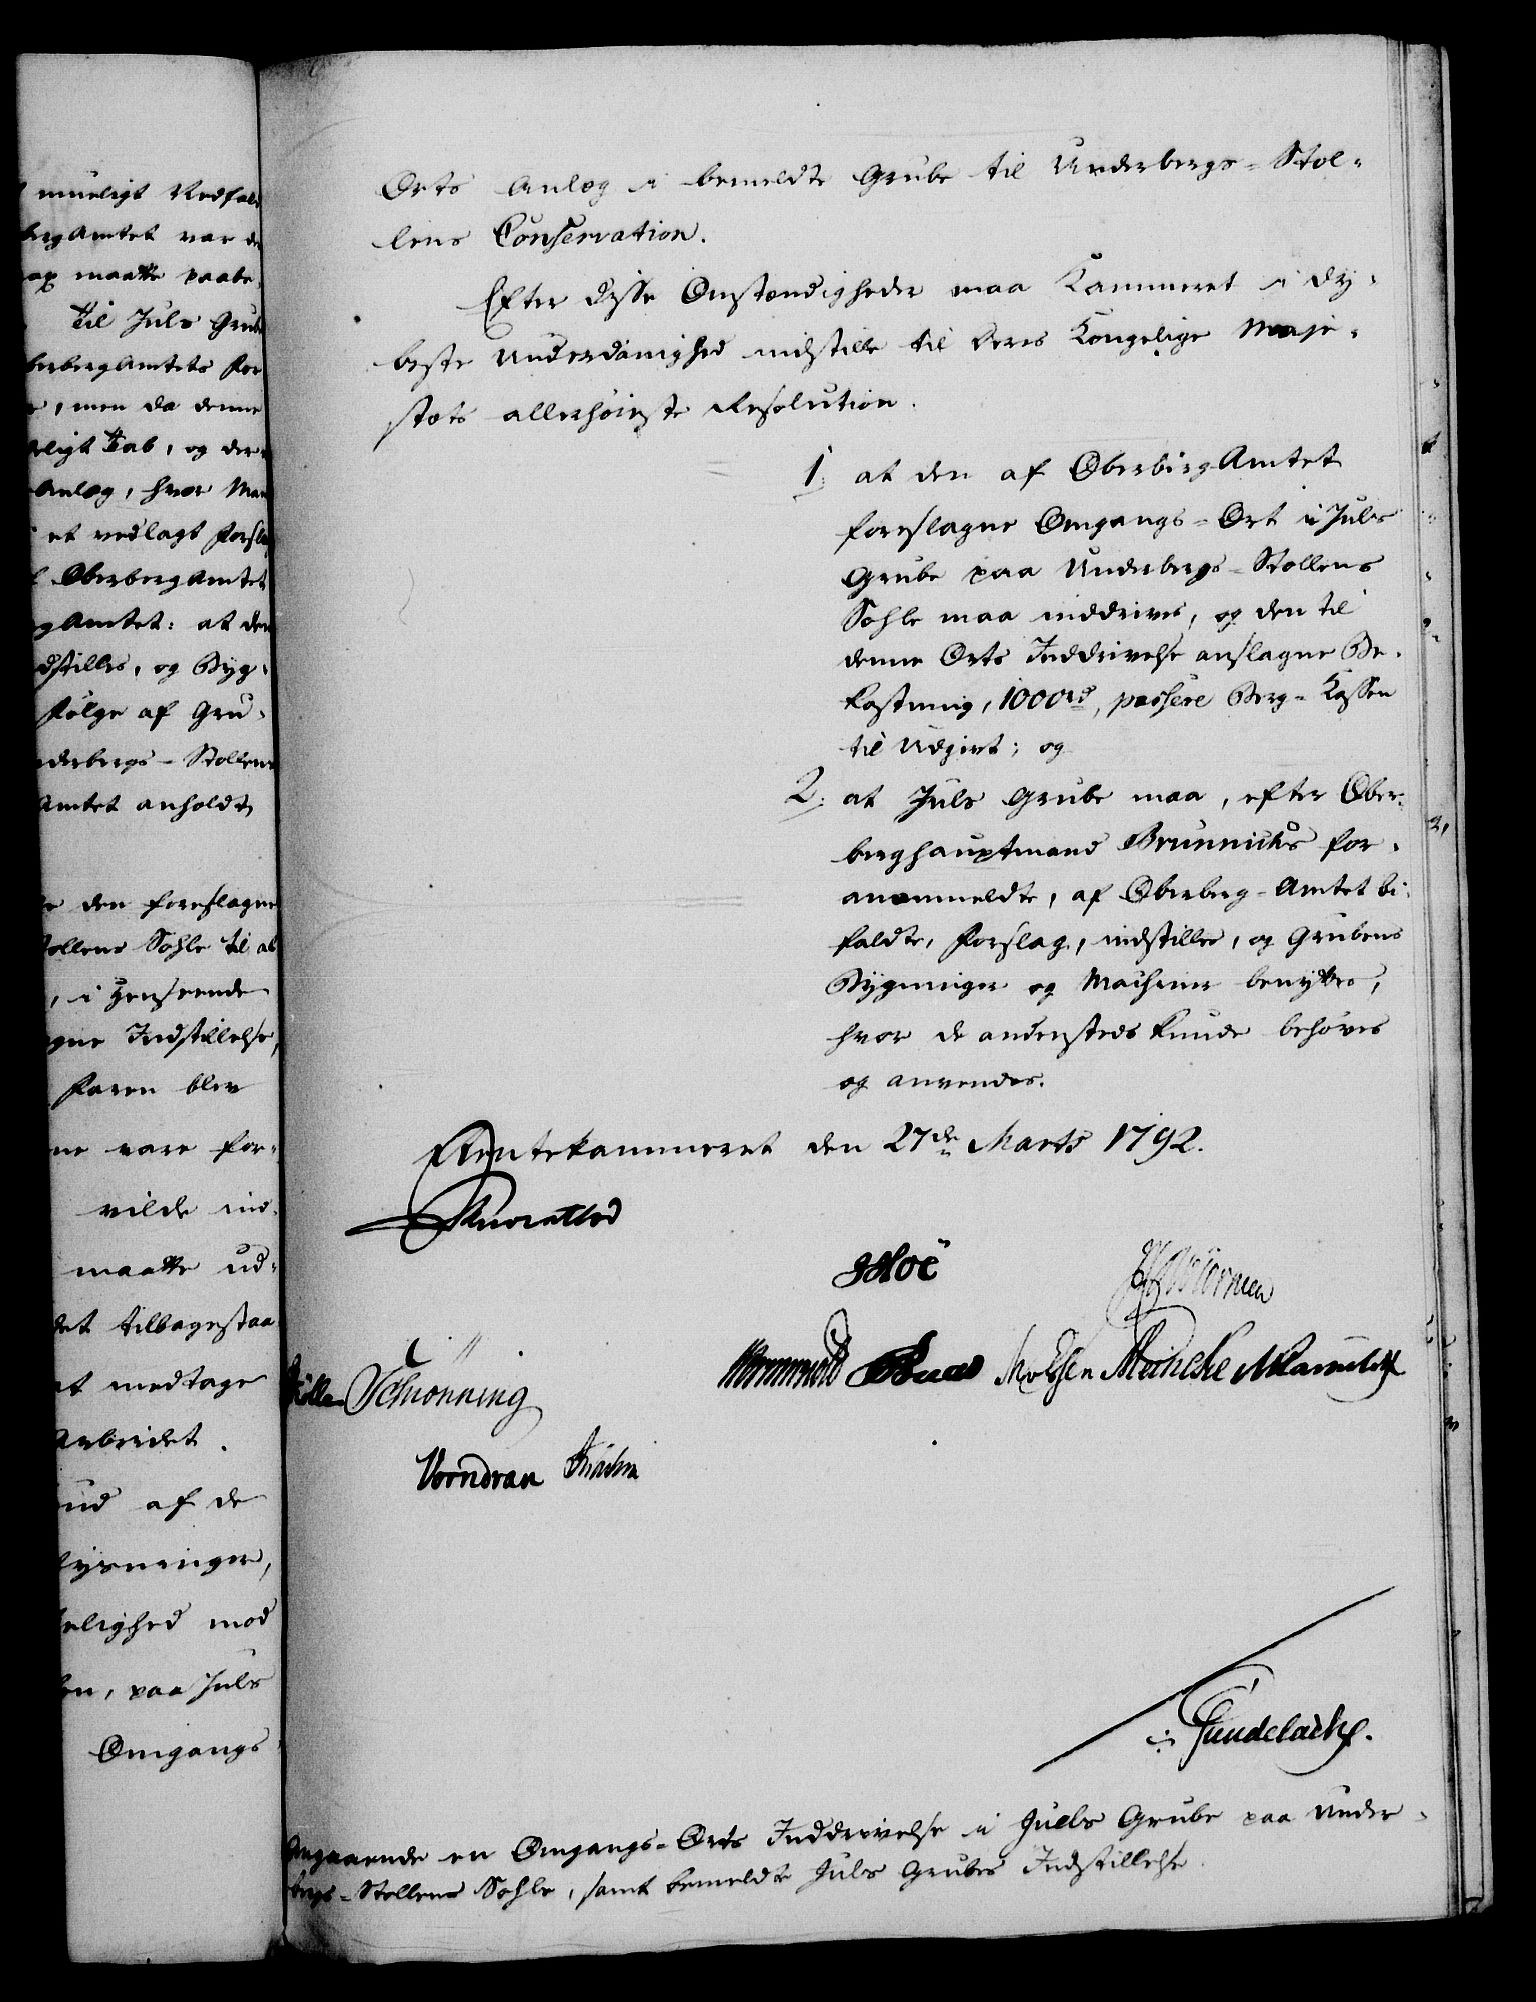 mueligt Vedfald
bergAmtet var de
maatte paabe
til Juls Grube
berbergAmtets For
, men da denne
ligt Tab, og der
Anlæg, hvor Man
et vedlagt Forslag
OberbergAmtet
gAmtet: at den
dstilles, og Byg-
Følge af Gru-
nderbergs-Stollens
Amtet anholdt
den foreslagne
tollens Sohle til at
, i Henseende
gne Indstillelse,
Faren blev
ne vare for-
vilde ind-
maatte ud-
det tilbagestaa
at medtage
Arbeidet.
ud af de
lysninger,
elighed mod
en, paa Juls
Omgangs
Orts Anlæg i bemeldte Grube til Underbergs-Stol-
lens Conservation.
Efter disse Omstændigheder maa Kammeret i dy-
beste Underdanighed indstille til Deres Kongelige Maje-
stæts allerhöieste Resolution.
1: at den af OberbergAmtet
foreslagne Omgangs-Ort i Juls
Grube paa Underbergs-Stollens
Sohle maa inddrives, og den til
denne Orts Inddrivelse anslagne Be-
kostning, 1000 rd, passere Berg-Kassen
til Udgivt; og
2: at Juls Grube maa, efter Ober-
berghauptmand Brünnichs for-
anmeldte, af Oberberg-Amtet bi-
faldte, Forslag, indstilles, og Grubens
Bygninger og Machiner benyttes,
hvor de andensteds kunde behöves
og anvendes.
Rentekammeret den 27de Marts 1792.
Hoë
Schiönning
Meinche
Vorndran
Gundelach.
Angaaende en Omgangs-Orts Inddrivelse i Juels Grube paa Under-
bergs-Stollens Sohle, samt bemeldte Juls Grubes Indstillelse.